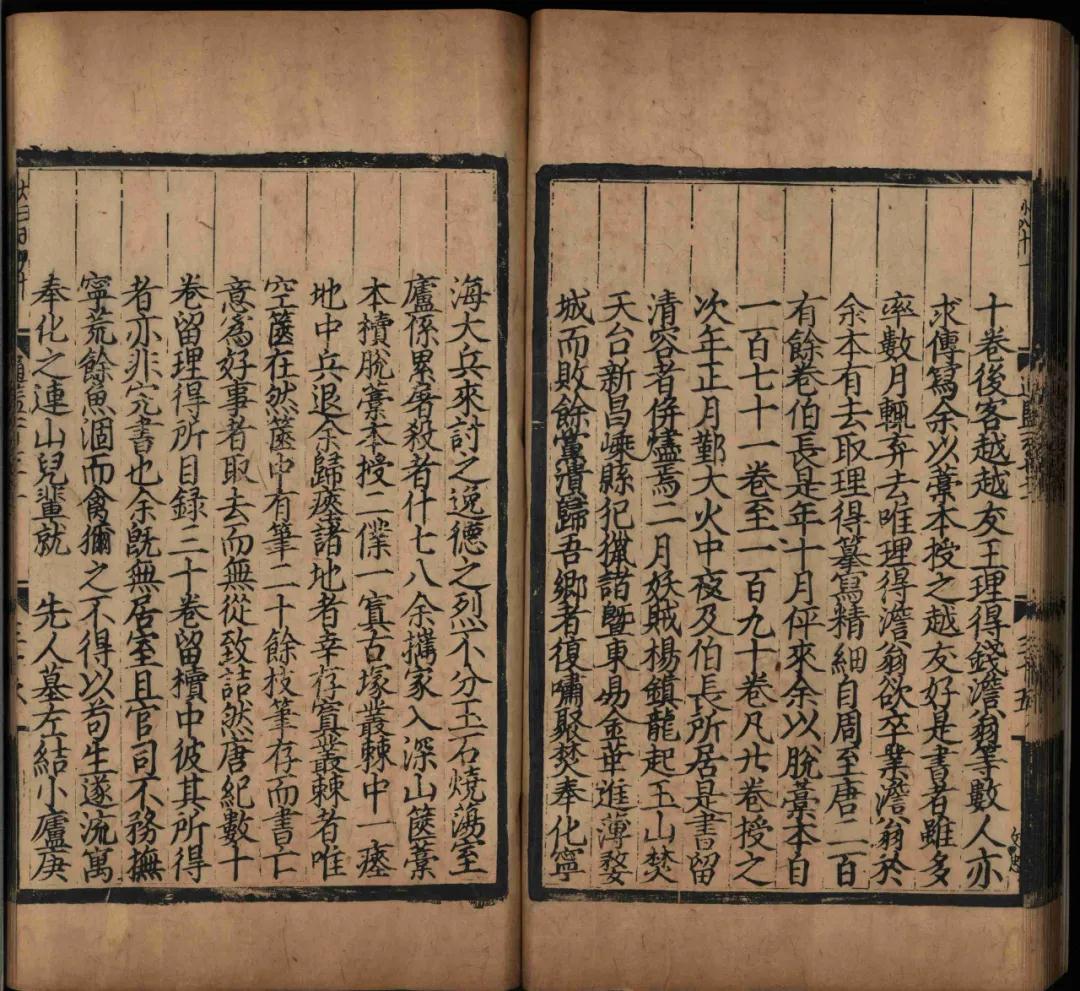 十卷後客越越友王理得錢澹翁等數人亦
求傳寫余以藁本授之越友好是書者雖多
率數月輒弃去唯理得澹翁欲卒業澹翁於
余本有去取理得篹寫精細自周至唐二百
有餘卷伯長是年十月伻來余以脫藁本自
一百七十一卷至一百九十卷凡廿卷授之
次年正月鄞大火中夜及伯長所居是書留
清容者併燼焉二月妖賊楊鎮龍起玉山焚
天台新昌嵊縣犯獵諸曁東昜金華進薄婺
城而敗餘黨潰歸吾鄉者復嘯聚焚奉化寧
海大兵來討之逸德之烈不分玉石燒蕩室
廬係累屠殺者什七八余攜家入深山篋藁
本櫝脫藁本授二僕一寘古塚叢棘中一瘞
地中兵退余歸瘞諸地者幸存寘叢棘者唯
空篋在然篋中有筆二十餘枝筆存而書亡
意為好事者取去而無從致詰然唐紀數十
卷留理得所目録三十卷留櫝中彼其所得
者亦非完書也余旣無居室且官司不務撫
寧荒餘魚涸而禽獮之不得以苟生遂流寓
奉化之連山兒輩就 先人墓左結小廬庚